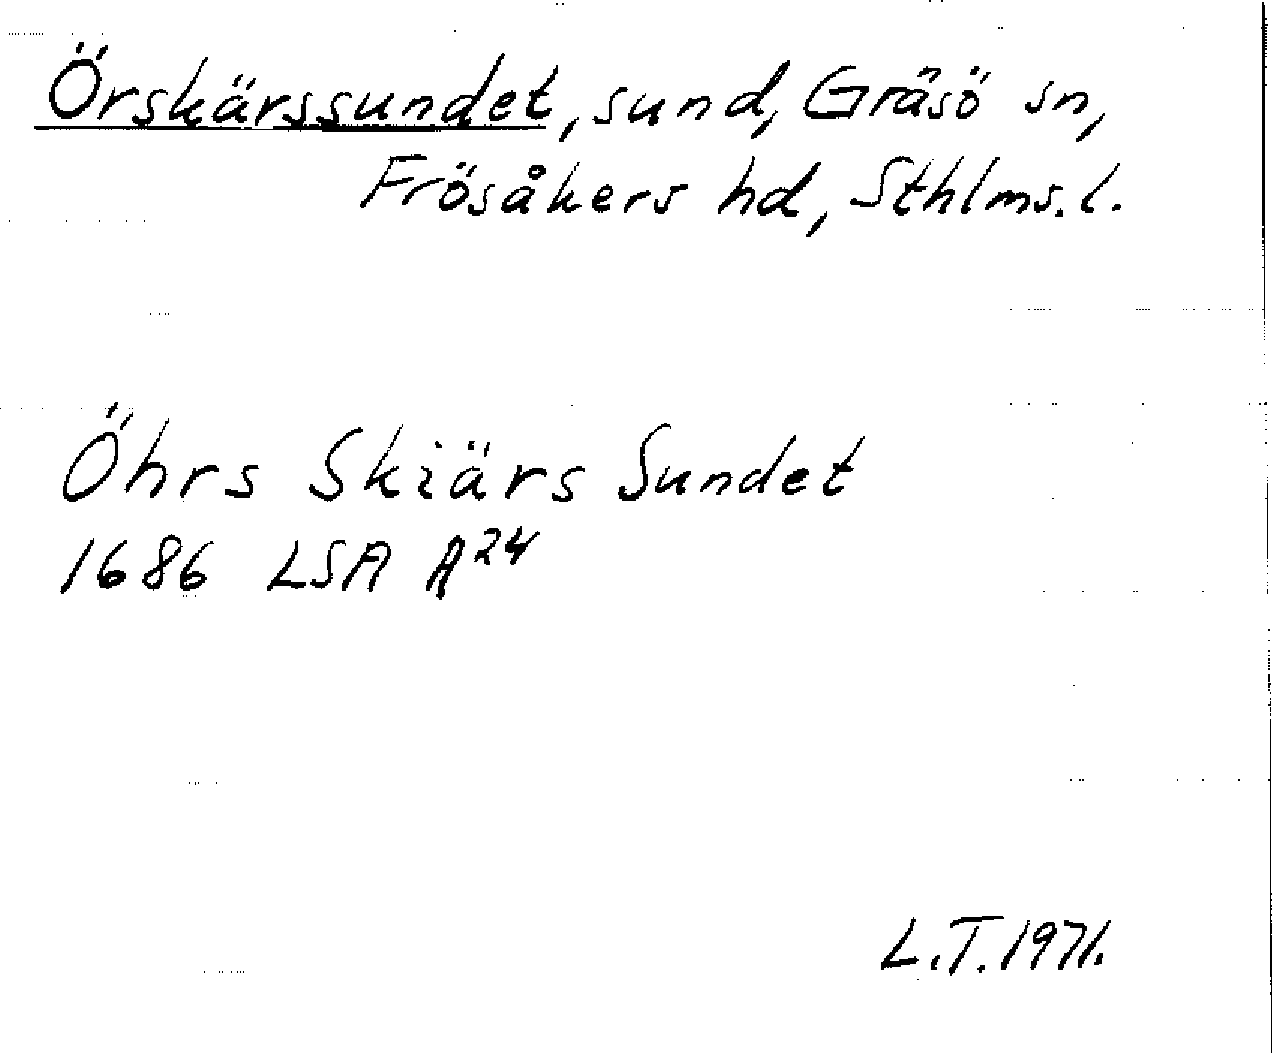 Örskärssundet, sund, Gräsö sn,
Frösåkers hd, Sthlms. l.
Öhrs Skiärs Sundet
1686 LSA A²⁴
L.T. 1971.